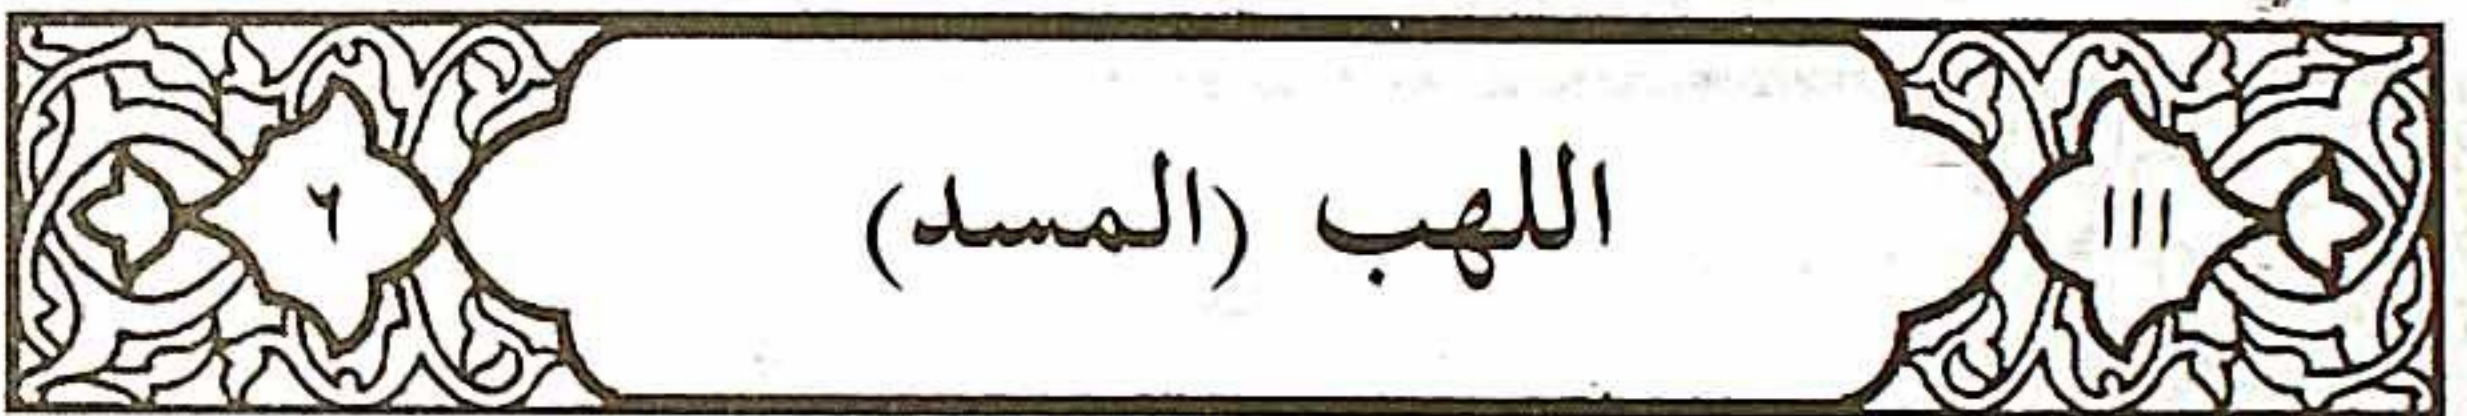 ١١١ اللهب (المسد) ٦